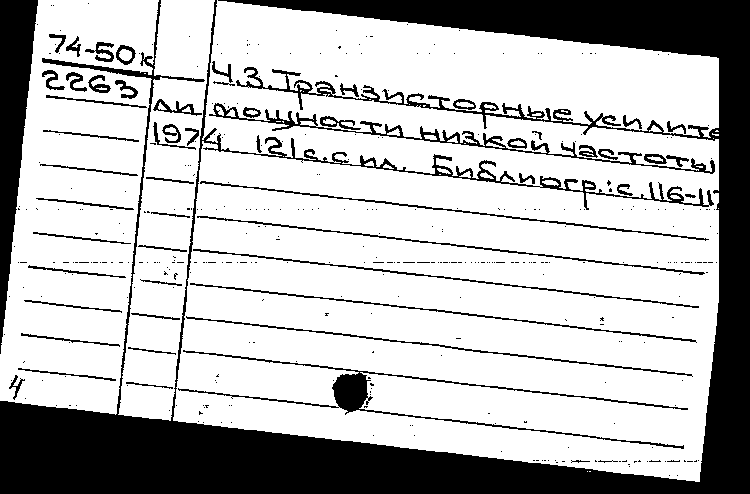 74-50к
2263
Ч.3. Транзисторные усилите
ли мощности низкой частоты
1974. 121с. с ил. Библиогр.: с.116-117
4